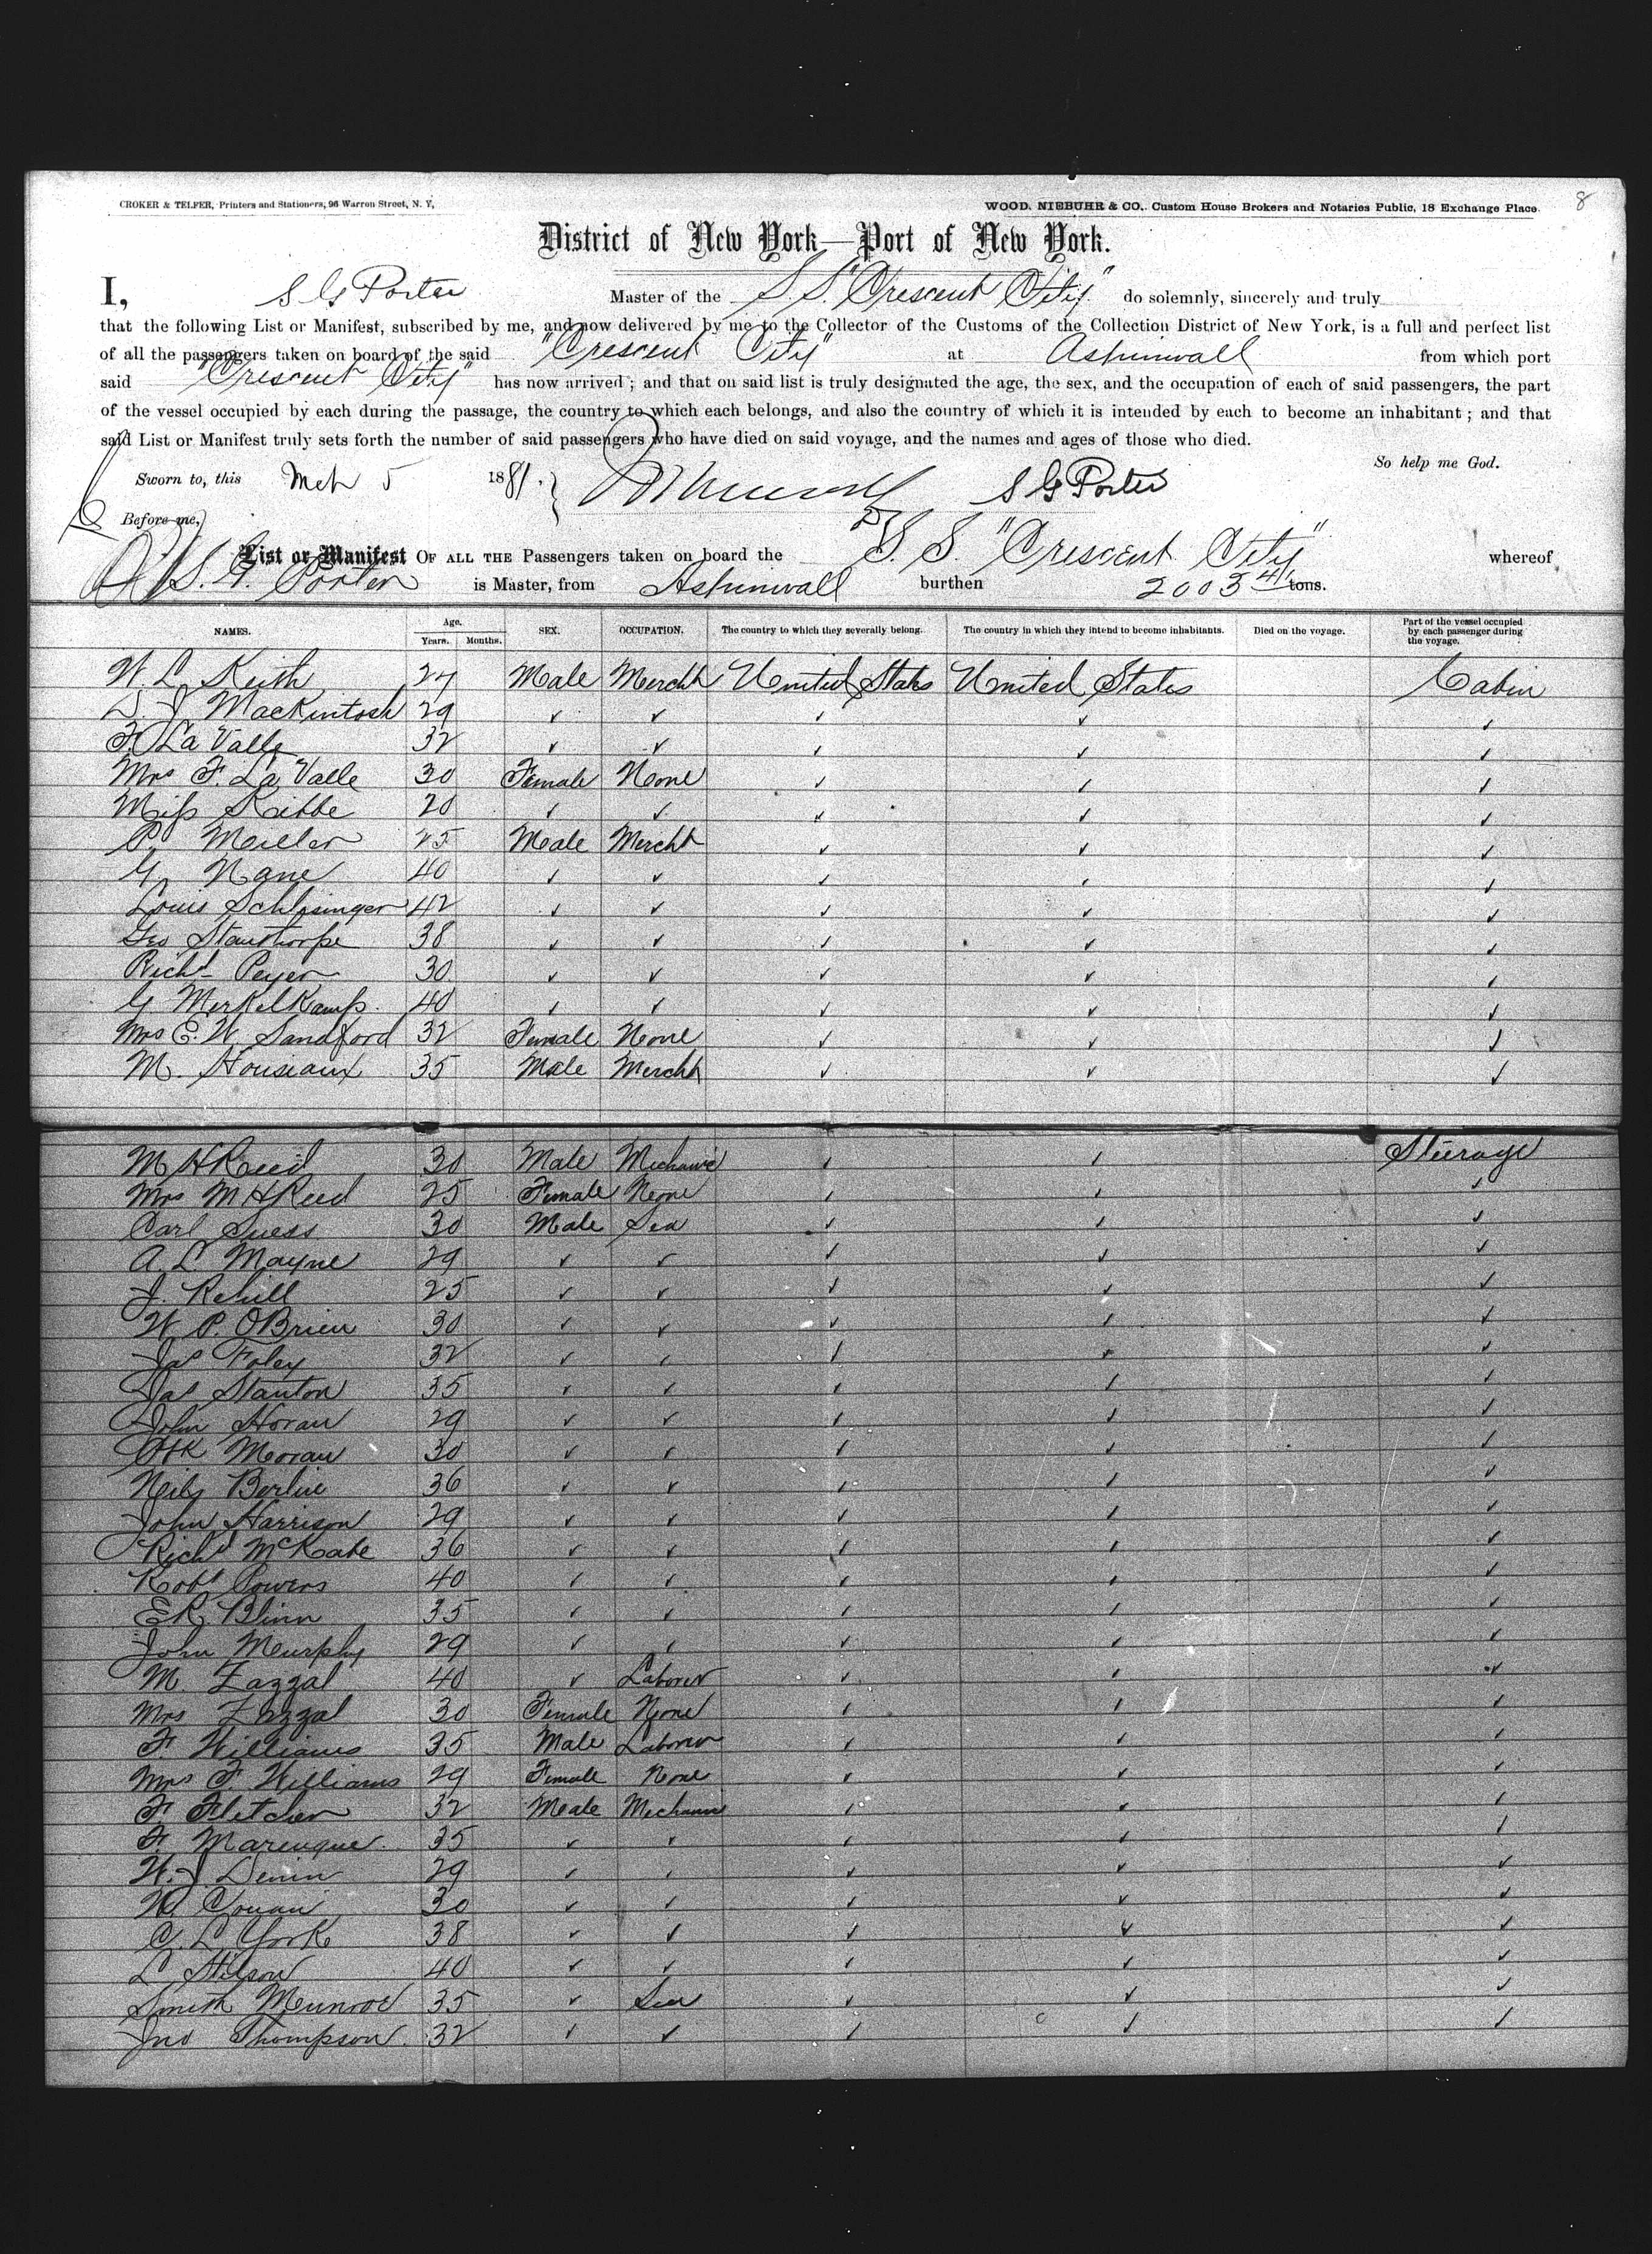 CROKER & TELFER, Printers and Stationers, 96 Warren Street, N. Y,
WOOD, NIEBUHR & CO., Custom House Brokers and Notaries Public, 18 Exchange Place.
8
District of New York—Port of New York.
I, S G Porter Master of the S. S. "Crescent City" do solemnly, sincerely and truly
that the following List or Manifest, subscribed by me, and now delivered by me to the Collector of the Customs of the Collection District of New York, is a full and perfect list
of all the passengers taken on board of the said "Crescent City" at Aspinwall from which port
said "Crescent City" has now arrived ; and that on said list is truly designated the age, the sex, and the occupation of each of said passengers, the part
of the vessel occupied by each during the passage, the country to which each belongs, and also the country of which it is intended by each to become an inhabitant ; and that
said List or Manifest truly sets forth the number of said passengers who have died on said voyage, and the names and ages of those who died.
So help me God.
Sworn to, this Mch 5 1881. } S G Porter
Before me,
List or Manifest OF ALL THE Passengers taken on board the S. S. "Crescent City" whereof
S. G. Porter is Master, from Aspinwall burthen 2003 41 tons.
NAMES. Age. Years. Months. SEX. OCCUPATION. The country to which they severally belong. The country in which they intend to become inhabitants. Died on the voyage. Part of the vessel occupied by each passenger during the voyage.
W. L. Keith 27 Male Mercht United States United States Cabin
D. J. Mackintosh 29 ✓ ✓ ✓ ✓ ✓
F. La Valle 32 ✓ ✓ ✓ ✓ ✓
Mrs F. La Valle 30 Female None ✓ ✓ ✓
Miss Kibbe 20 ✓ ✓ ✓ ✓ ✓
P. Meiller 25 Male Mercht ✓ ✓ ✓
G. Nane 40 ✓ ✓ ✓ ✓ ✓
Louis Schlisinger 42 ✓ ✓ ✓ ✓ ✓
Geo Stausthorpe 38 ✓ ✓ ✓ ✓ ✓
Richd Peyer 30 ✓ ✓ ✓ ✓ ✓
G Merkelkamp. 40 ✓ ✓ ✓ ✓ ✓
Mrs E. W. Sandford 32 Female None ✓ ✓ ✓
M. Houseaux 35 Male Mercht ✓ ✓ ✓
M H Reed 30 Male Mechanic ✓ ✓ Steerage
Mrs M H Reed 25 Female None ✓ ✓ ✓
Carl Suess 30 Male Sea ✓ ✓ ✓
A. L. Mayne 29 ✓ ✓ ✓ ✓ ✓
J. Rehill 25 ✓ ✓ ✓ ✓ ✓
W. P. OBrien 30 ✓ ✓ ✓ ✓ ✓
Jas Foley 32 ✓ ✓ ✓ ✓ ✓
Jas Stanton 35 ✓ ✓ ✓ ✓ ✓
John Horan 29 ✓ ✓ ✓ ✓ ✓
Ptk Moran 30 ✓ ✓ ✓ ✓ ✓
Neils Berlin 36 ✓ ✓ ✓ ✓ ✓
John Harrison 29 ✓ ✓ ✓ ✓ ✓
Richd McKabe 36 ✓ ✓ ✓ ✓ ✓
Robt Powers 40 ✓ ✓ ✓ ✓ ✓
E R. Blinn 35 ✓ ✓ ✓ ✓ ✓
John Meurphy 29 ✓ ✓ ✓ ✓ ✓
M. Zazzal 40 ✓ Laborer ✓ ✓ ✓
Mrs Zazzal 30 Female None ✓ ✓ ✓
F. Williams 35 Male Laborer ✓ ✓ ✓
Mrs F. Williams 29 Female None ✓ ✓ ✓
F. Fletcher 32 Male Mechanic ✓ ✓ ✓
F. Marenque 35 ✓ ✓ ✓ ✓ ✓
W. J. Denin 29 ✓ ✓ ✓ ✓ ✓
W. Conan 30 ✓ ✓ ✓ ✓ ✓
C. L. York 38 ✓ ✓ ✓ ✓ ✓
L. Stilson 40 ✓ ✓ ✓ ✓ ✓
Smith Munroe 35 ✓ Sea ✓ ✓ ✓
Jno Thompson. 32 ✓ ✓ ✓ ✓ ✓